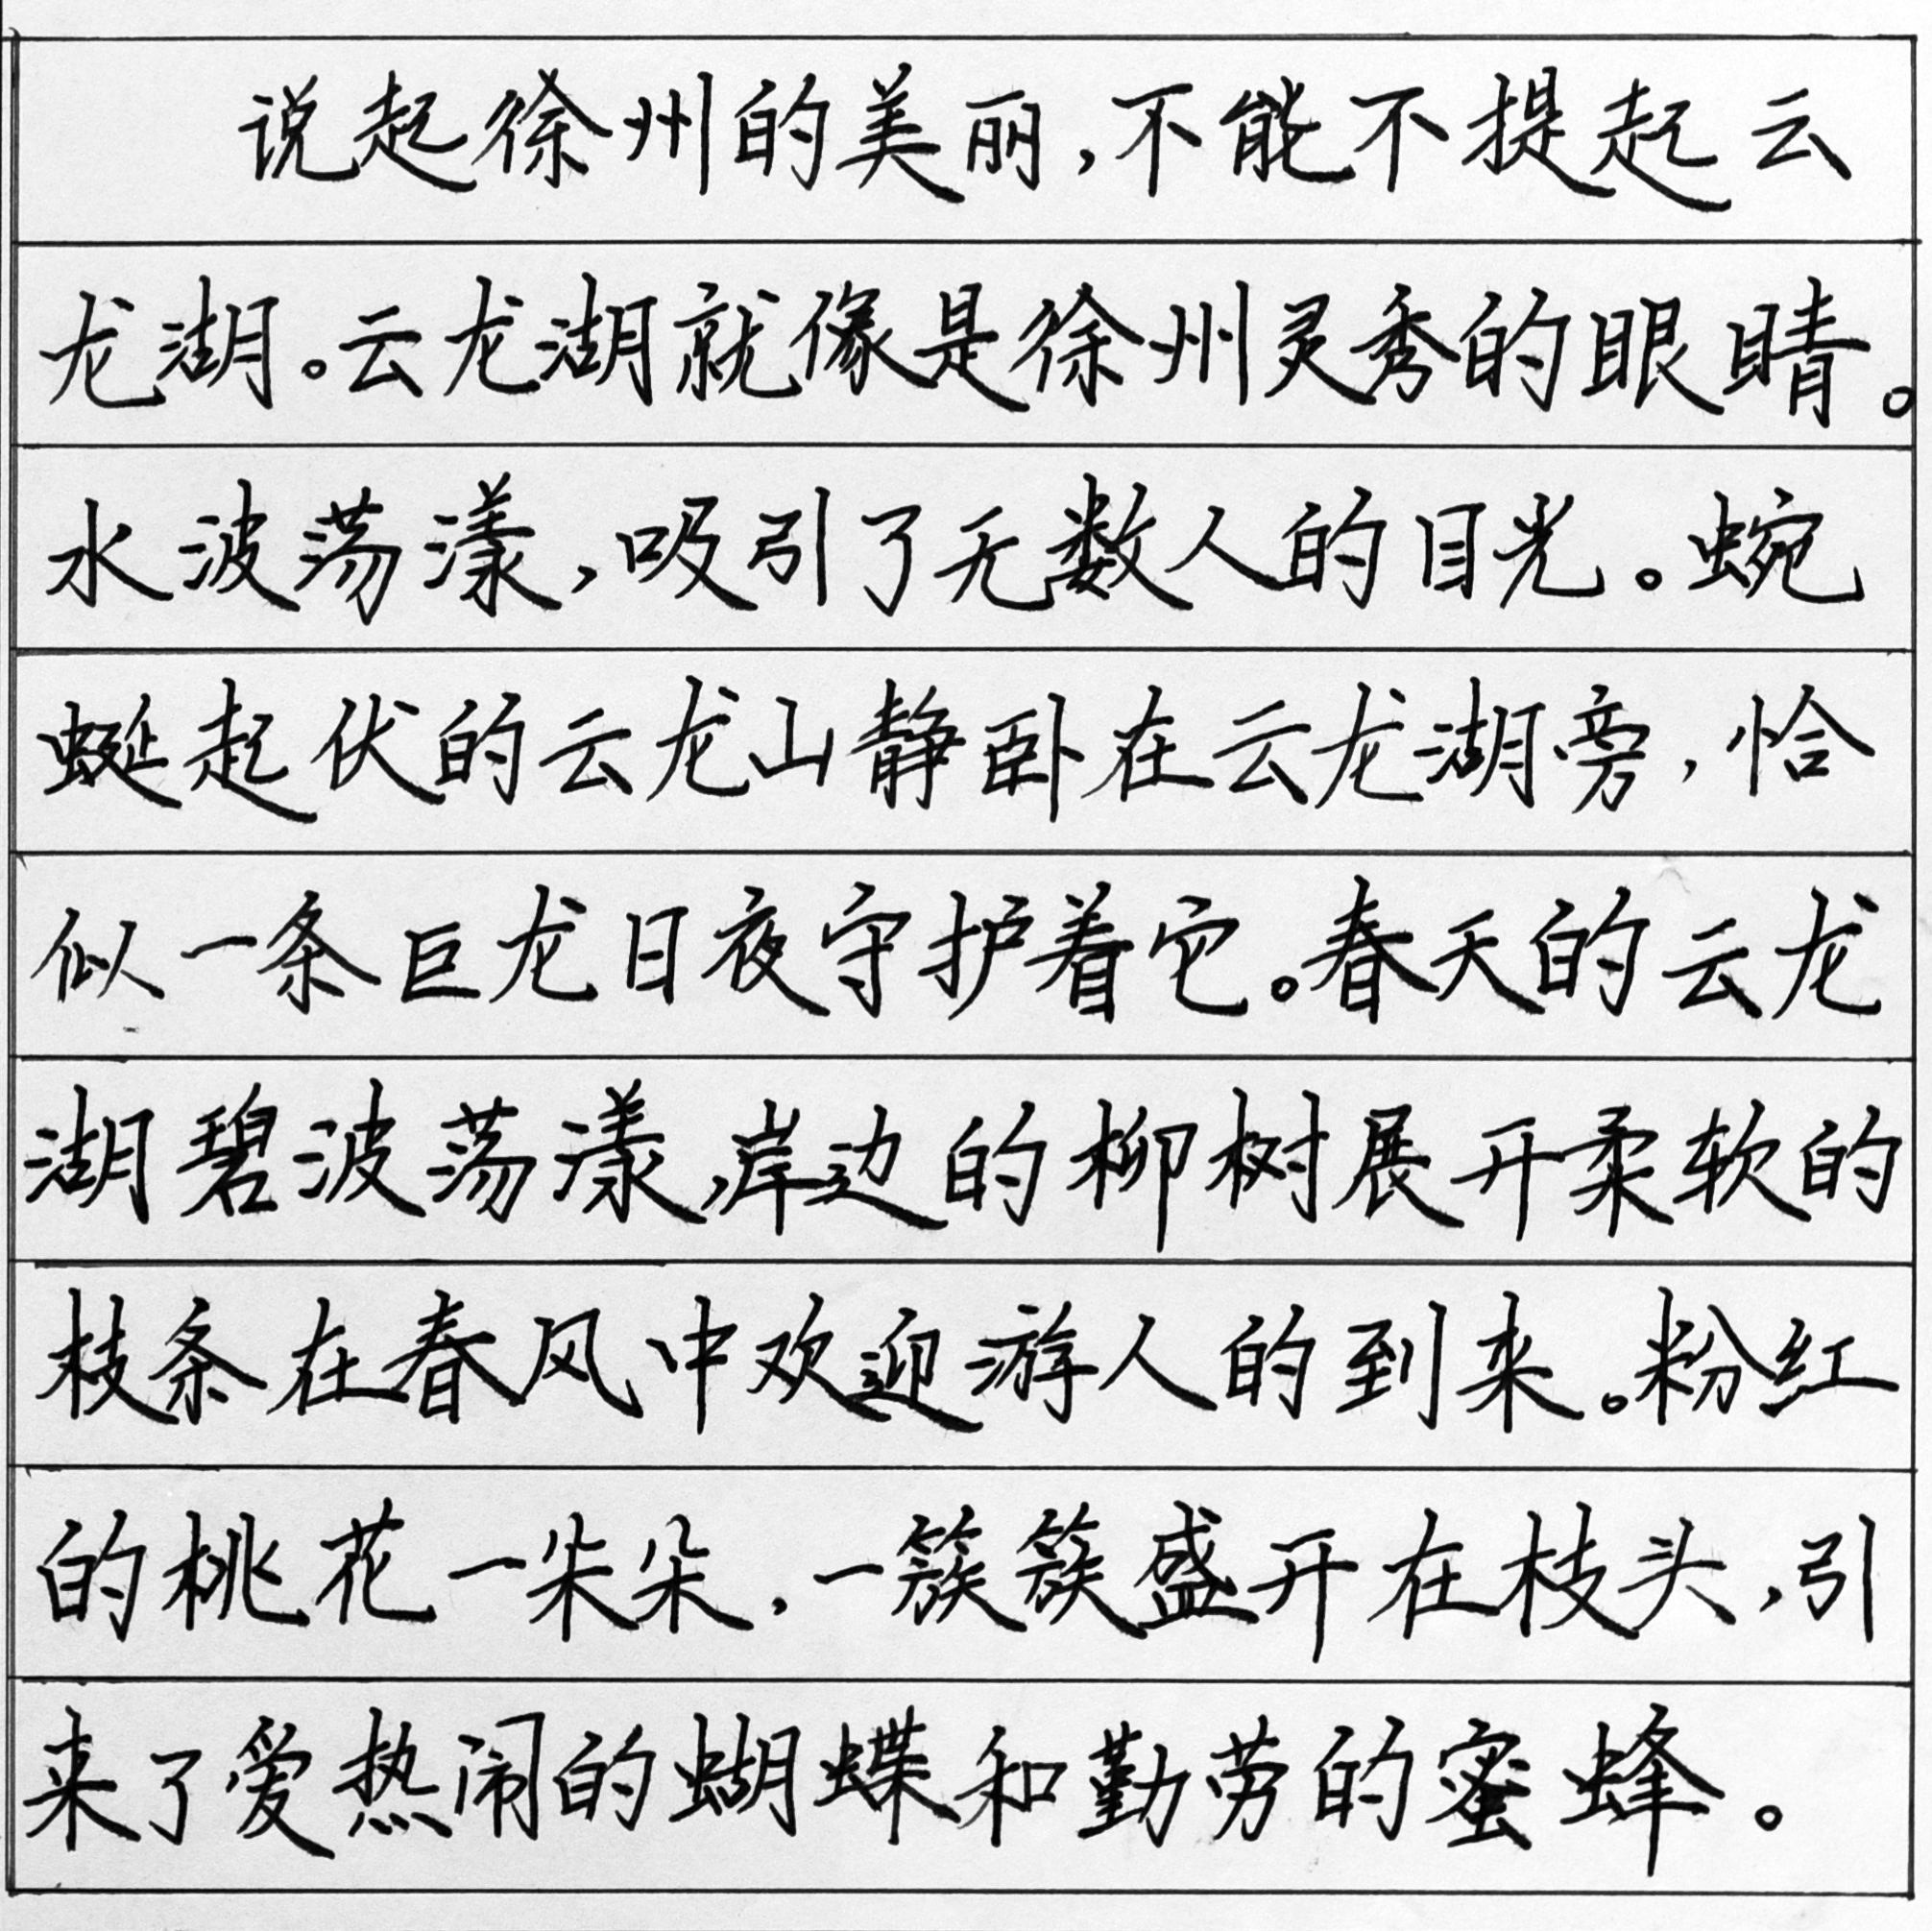 说起徐州的美丽,不能不提起云
龙湖。云龙湖就像是徐州灵秀的眼睛。
水波荡漾,吸引了无数人的目光。蜿
蜒起伏的云龙山静卧在云龙湖旁,恰
似一条巨龙日夜守护着它。春天的云龙
湖碧波荡漾,岸边的柳树展开柔软的
枝条在春风中欢迎游人的到来。粉红
的桃花一朵朵,一簇簇盛开在枝头,引
来了爱热闹的蝴蝶和勤劳的蜜蜂。